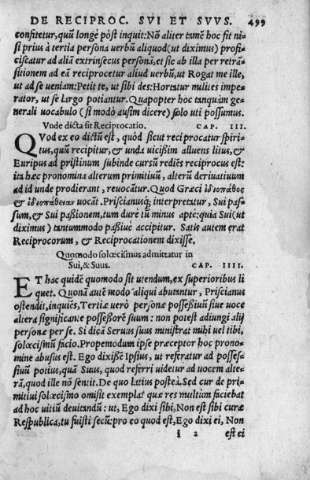 DE RECIPROC. SVI ET SVVS. 499
confitetur, quũ longè pòst inquit: Nõ aliter tamẽ hoc fit ni-
si prius à tertia persona uerbũ aliquod (ut diximus) profi-
ciscatur ad aliã extrinsecus personã, et sic ab illa per retrã-
sitionem ad eã reciprocetur aliud uerbũ, ut Rogat me ille,
ut ad se ueniam: Petit te, ut sibi des: Hortatur milites impe-
rator, ut se largo potiantur. Quapropter hoc tanquàm ge-
nerali uocabulo (si modò ausim dicere) solo uti possumus.
Vnde dicta sit Reciprocatio. CAP. III.
QVod ex eo dictũ est, quòd sicut reciprocatur spiri-
tus, quũ recipitur, & unda uicissim alluens litus, &
Euripus ad pristinum subinde cursũ redi͂s reciprocus est:
ita hæc pronomina alterum primitiuũ, alterũ deriuatiuum
ad id unde prodierant, reuocãtur. Quod Græci
uocãt. Priscianusq́; interpretatur, Sui pas-
sum, & Sui paßionem, tum durè tũ minus aptè: quia Sui (ut
diximus) tantummodo paßiuè accipitur. Satis autem erat
Reciprocorum, & Reciprocationem dixisse.
Quomodo solœcismus admittatur in
Sui, & Suus. CAP. IIII.
ET hæc quidẽ quomodo sit utendum, ex superioribus li
quet. Quonã autẽ modo aliqui abutantur, Priscianus
ostendit, inquiẽs, Tertiæ uerò personæ poßeßiuũ siue uoce
altera significante poßeßorẽ suum: non potest adiungi alij
personæ per se. Si dicã Seruus suus ministrat mihi uel tibi,
solœcismũ facio. Propemodum ipse præceptor hoc prono-
mine abusus est. Ego dixißẽ Ipsius, ut referatur ad posses-
siuũ potius, quàm Suus, quod referri uidetur ad uocem alte-
rã, quod ille nõ sentit. De quo latius posteà. Sed cur de pri-
mitiui solœcismo omisit exempla? quæ res multam faciebat
ad hoc uitiũ deuitandũ: ut, Ego dixi sibi, Non est sibi curæ
Respublica, tu fuisti secũ: pro eo quod est, Ego dixi ei, Non
i 2 est ei